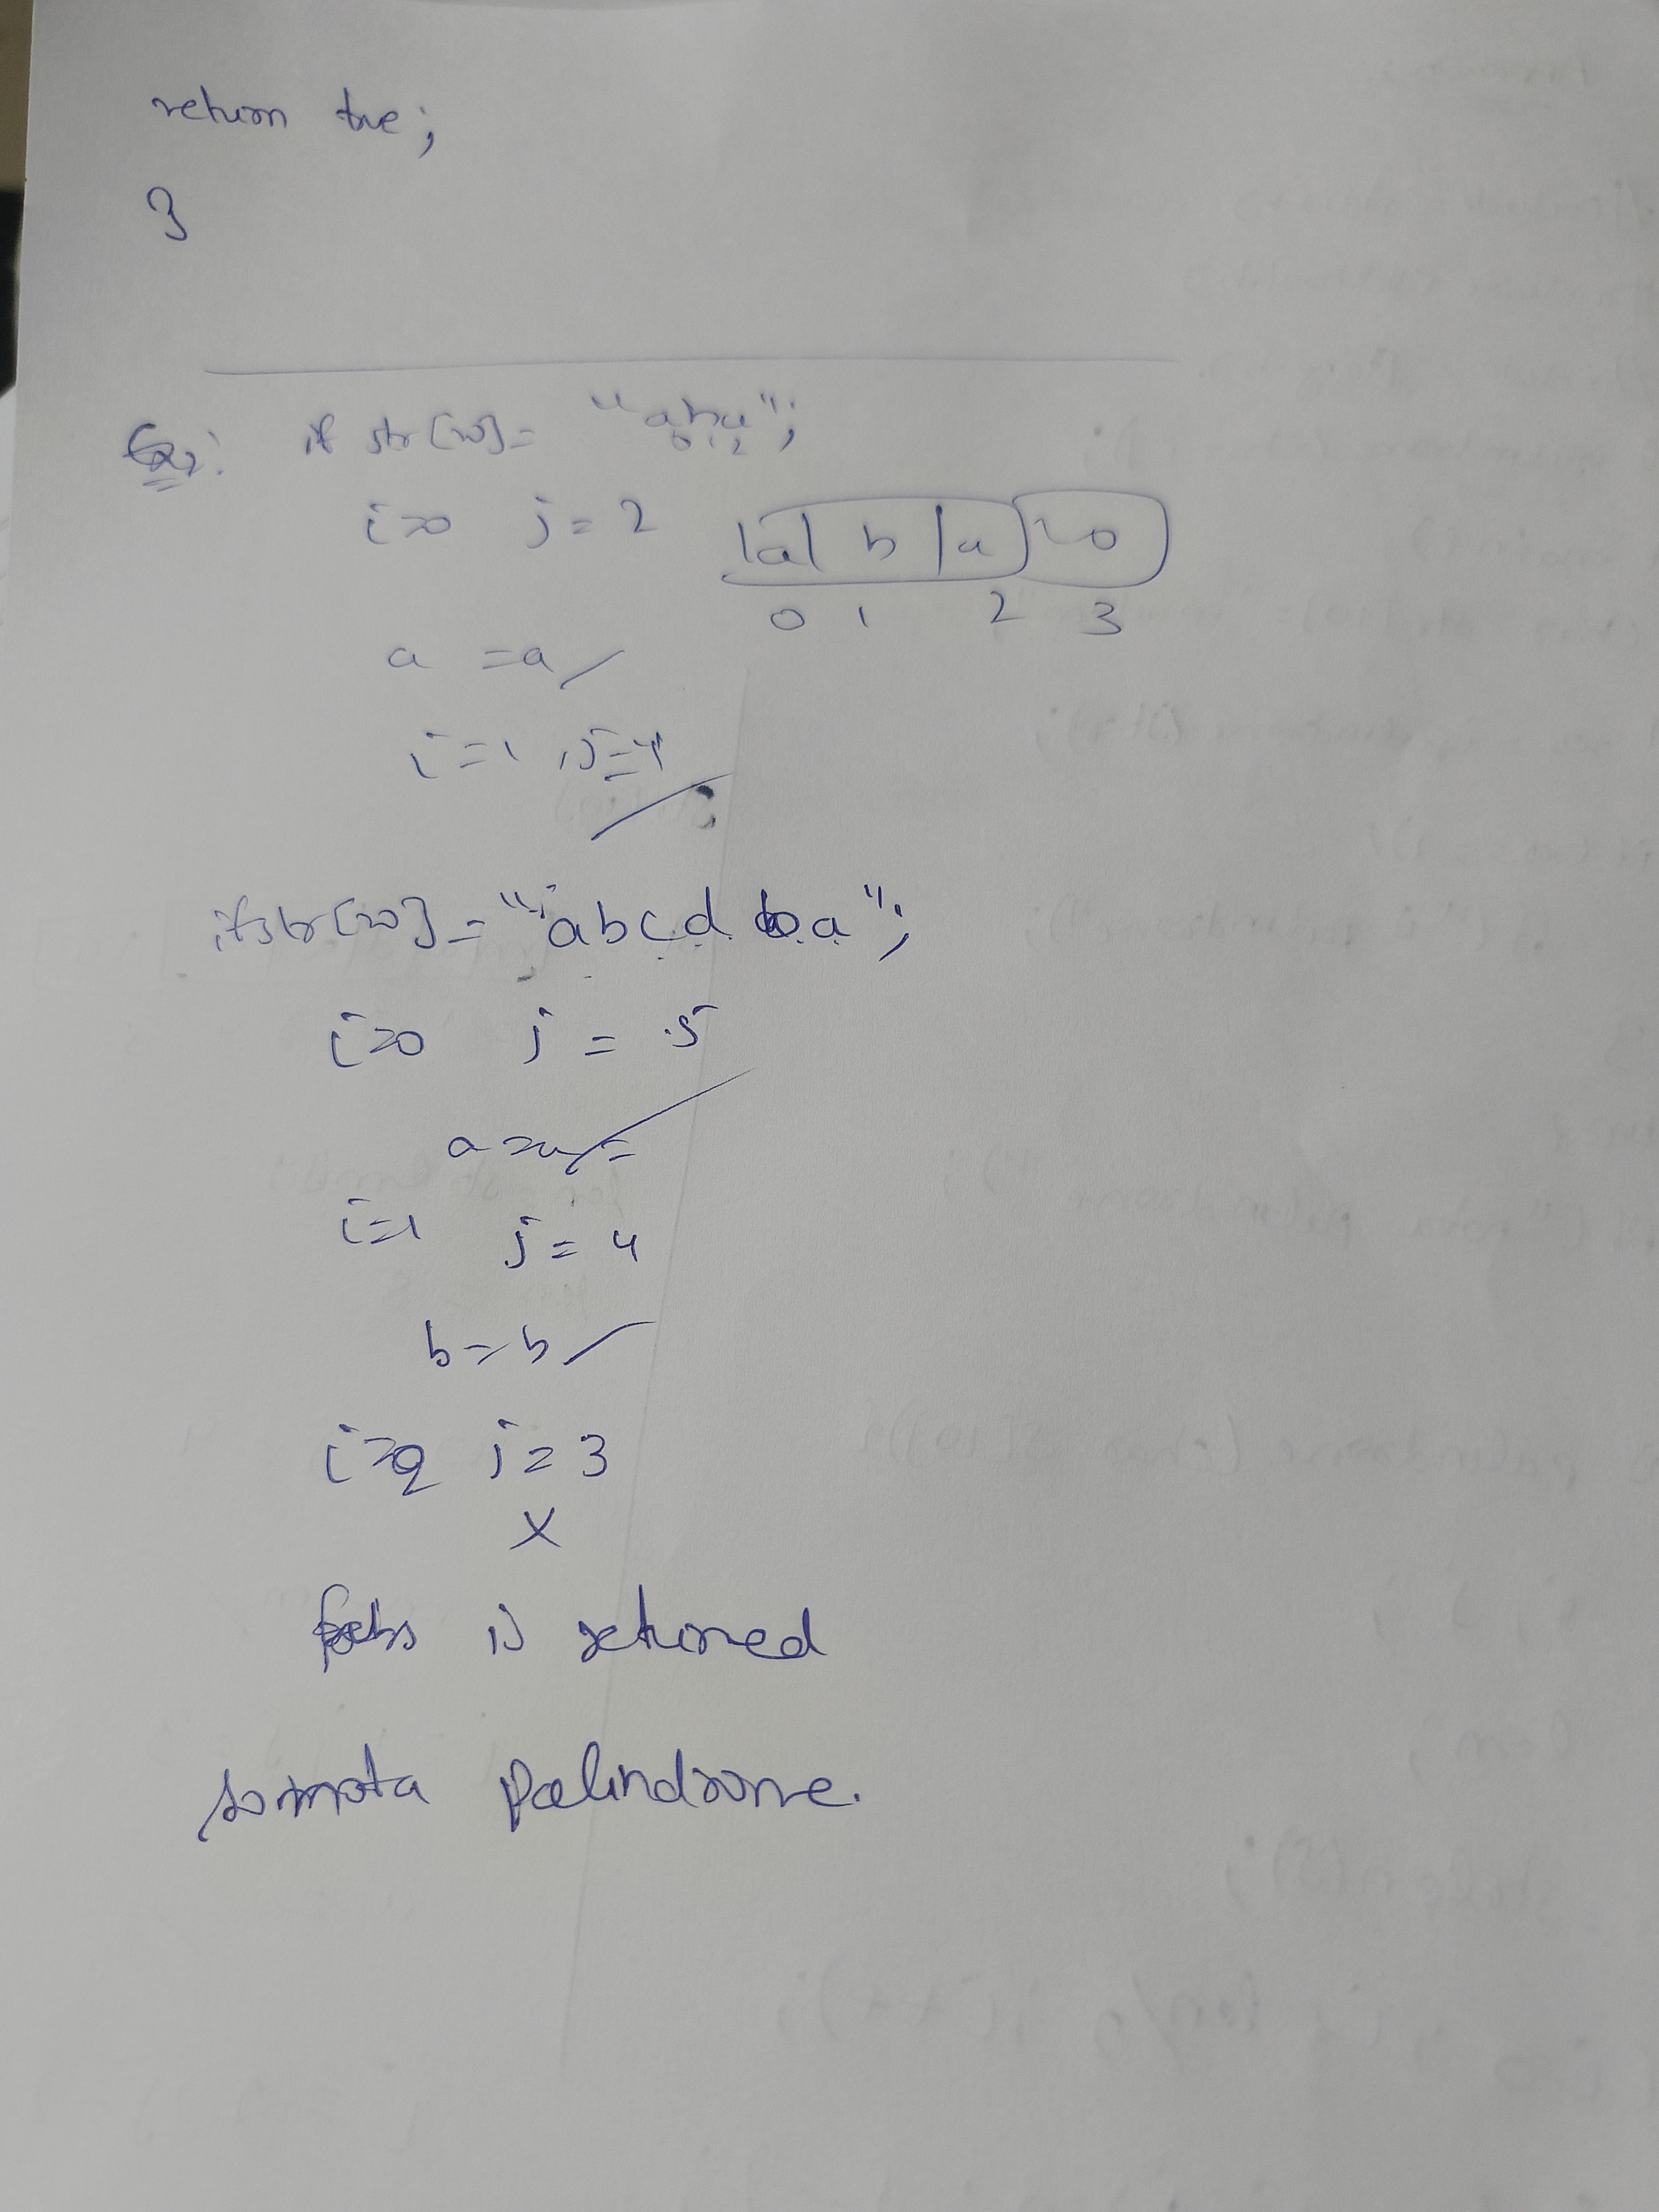 return true;
}
Ex: if str[20] = "aba";
0 1 2
i=0 j = 2 |a| b |a| \0
0 1 2 3
a = a
i=1, j=1
if str[20] = "abcd ba";
i=0 j = 5
a=a
i=1 j = 4
b=b
i=2 j = 3
X
false is returned
so not a Palindrome.